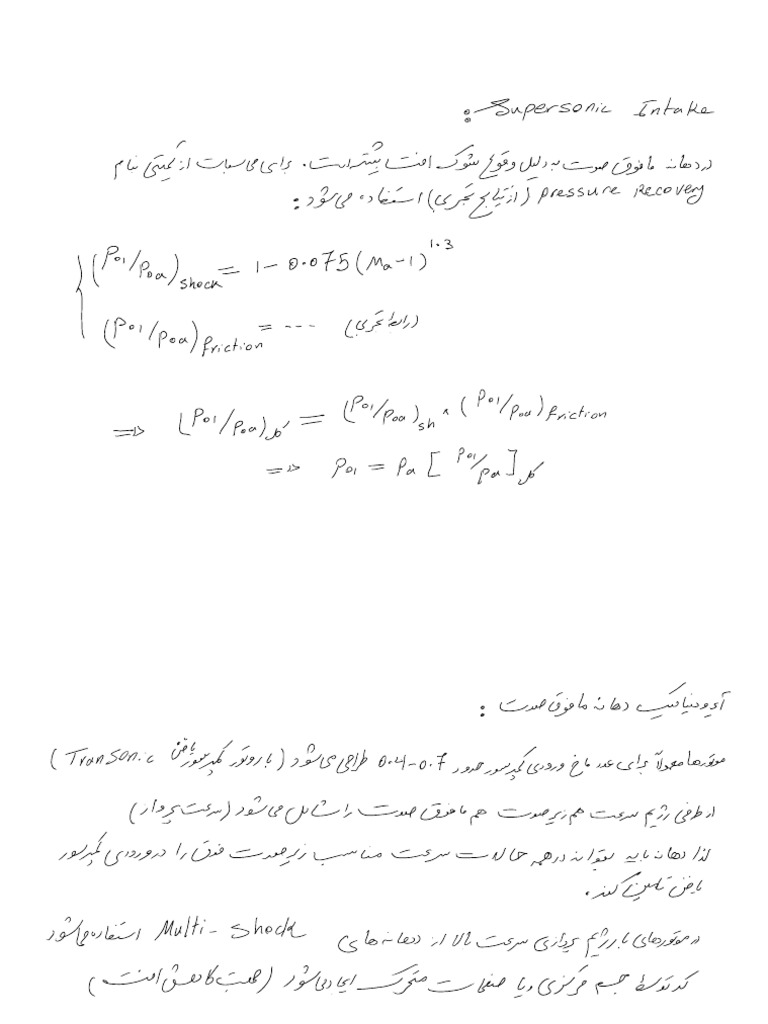 Supersonic Intake :
در دهانه مافوق صوت به دلیل وقوع شوک افت بیشتر است. برای محاسبات از کمیتی بنام
Pressure Recovery (از نتایج تجربی) استفاده می‌شود:
(P01/P0a)shock = 1 - 0.075 (Ma-1)^1.3
(P01/P0a)friction = --- (رابطه تجربی)
=> (P01/P0a)کل = (P01/P0a)sh × (P01/P0a)friction
=> P01 = Pa [P01/Pa]کل
آیرودینامیک دهانه مافوق صوت :
موتورها معمولاً برای عدد ماخ ورودی کمپرسور حدود 0.4-0.7 طراحی می‌شود (با روتور کمپرسور یا فن Transonic)
از طرفی رژیم سرعت هم زیر صوت هم مافوق صوت را شامل می‌شود (سرعت پرواز)
لذا دهانه باید بتواند در همه حالات سرعت مناسب زیر صوت فوق را در ورودی کمپرسور
یا فن تامین کند.
در موتورهای با رژیم پروازی سرعت بالا از دهانه‌های Multi-shock استفاده می‌شود
که توسط جسم مرکزی و یا صفحات متحرک ایجاد می‌شود (جهت کاهش افت)